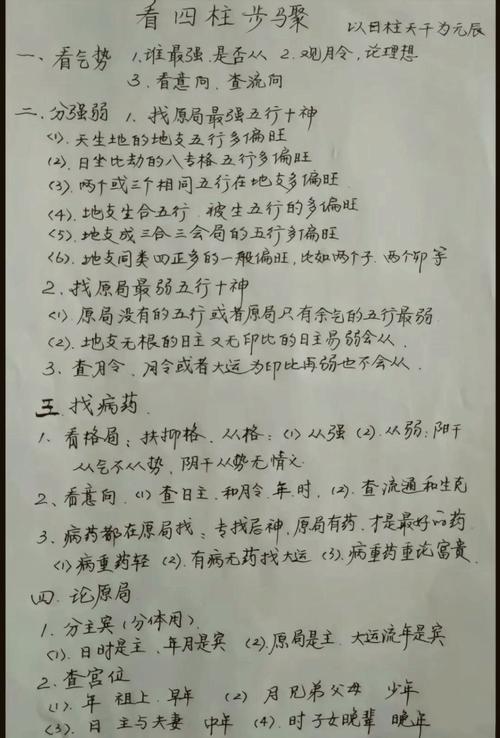 看四柱步骤
以日柱天干为元辰
一、看气势 1.谁最强.是否从 2.观月令,论理想
3.看意向.查流向
二.分强弱 1.找原局最强五行十神
(1).天生地的地支五行多偏旺
(2).日坐比劫的八专格五行多偏旺
(3).两个或三个相同五行在地支多偏旺.
(4).地支生合五行.被生五行的多偏旺
(5).地支成三合三会局的五行多偏旺
(6).地支同类四正多的一般偏旺,比如两个子.两个卯等
2.找原局最弱五行十神
(1).原局没有的五行或者原局只有余气的五行最弱.
(2).地支无根的日主又无印比的日主易弱会从.
3.查月令.月令或者大运为印比再弱也不会从.
三.找病药.
1.看格局:扶抑格.从格:(1)从强 (2).从弱:阳干
从气不从势,阴干从势无情义.
2、看意向.(1)查日主.和月令.年.时,(2).查流通和生克
3.病药都在原局找:专找忌神,原局有药.才是最好的药.
(1)病重药轻 (2).有病无药找大运 (3).病重药重论富貴.
四.论原局
1.分主宾(分体用).
(1).日时是主.年月是宾 (2).原局是主.大运流年是宾
2.查宫位
(1).年 祖上.早年 (2) 月兄弟父母 少年
(3).日 主与夫妻 中年 (4).时子女晚辈 晚年